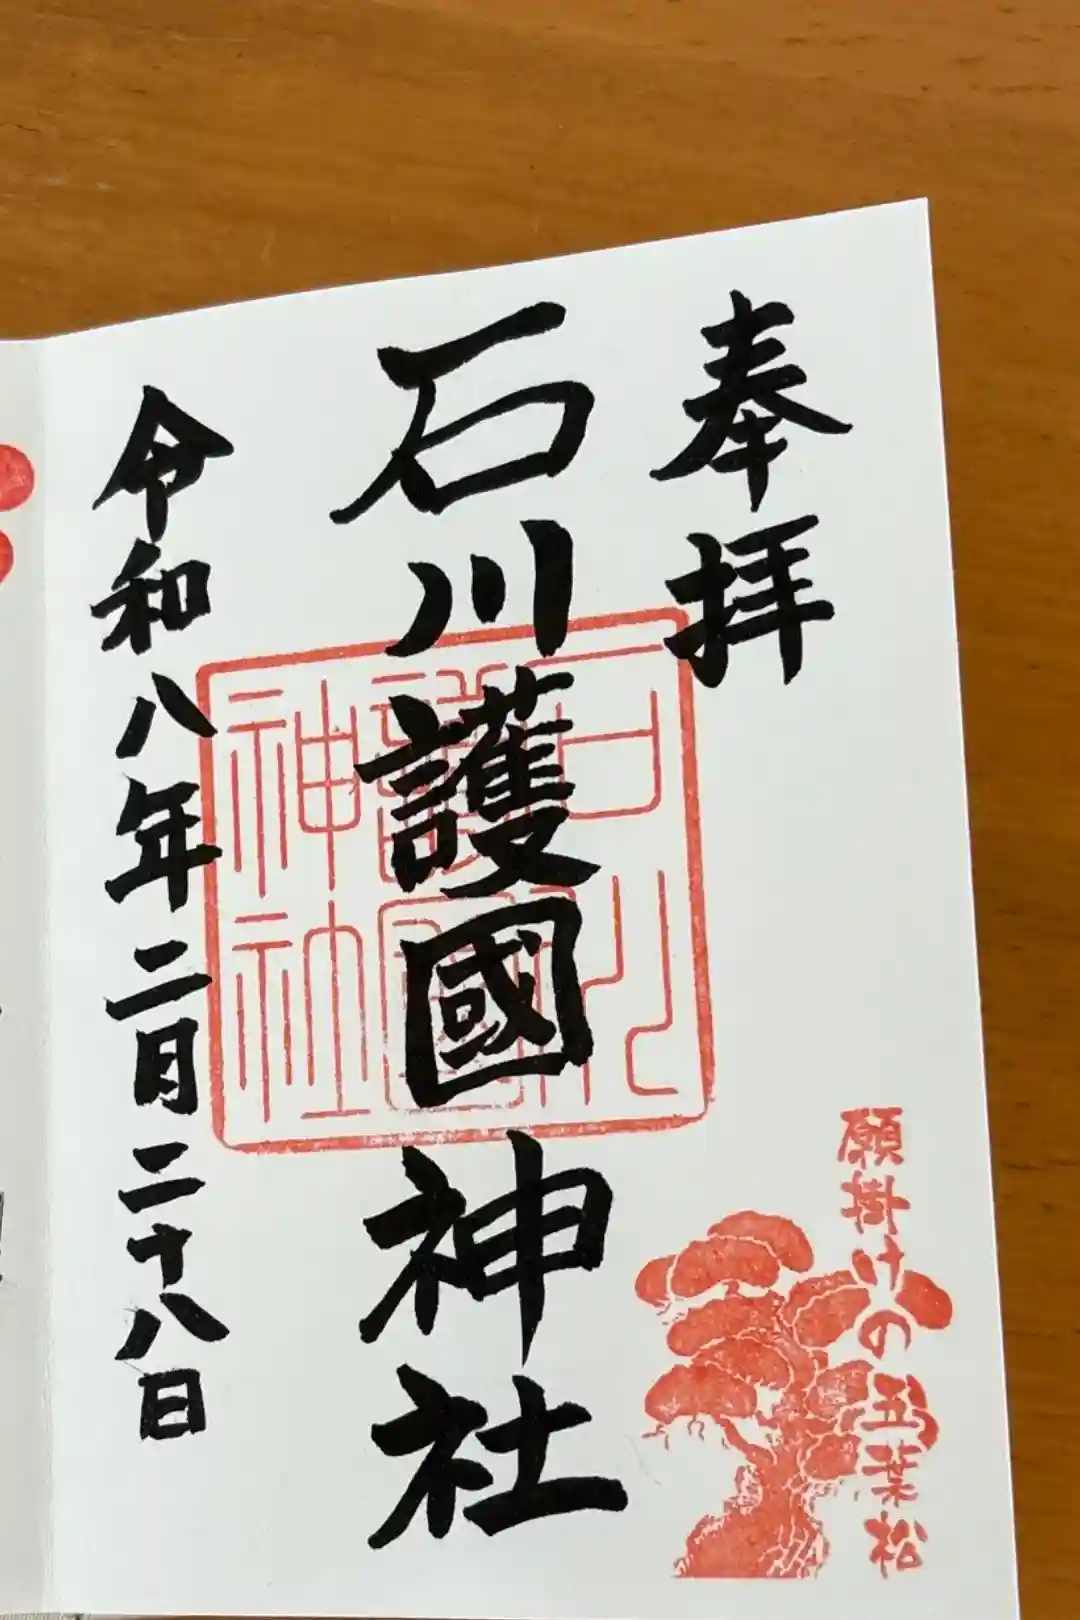 奉拝
石川護國神社
石川護國神社
令和八年二月二十八日
願掛けの五葉松